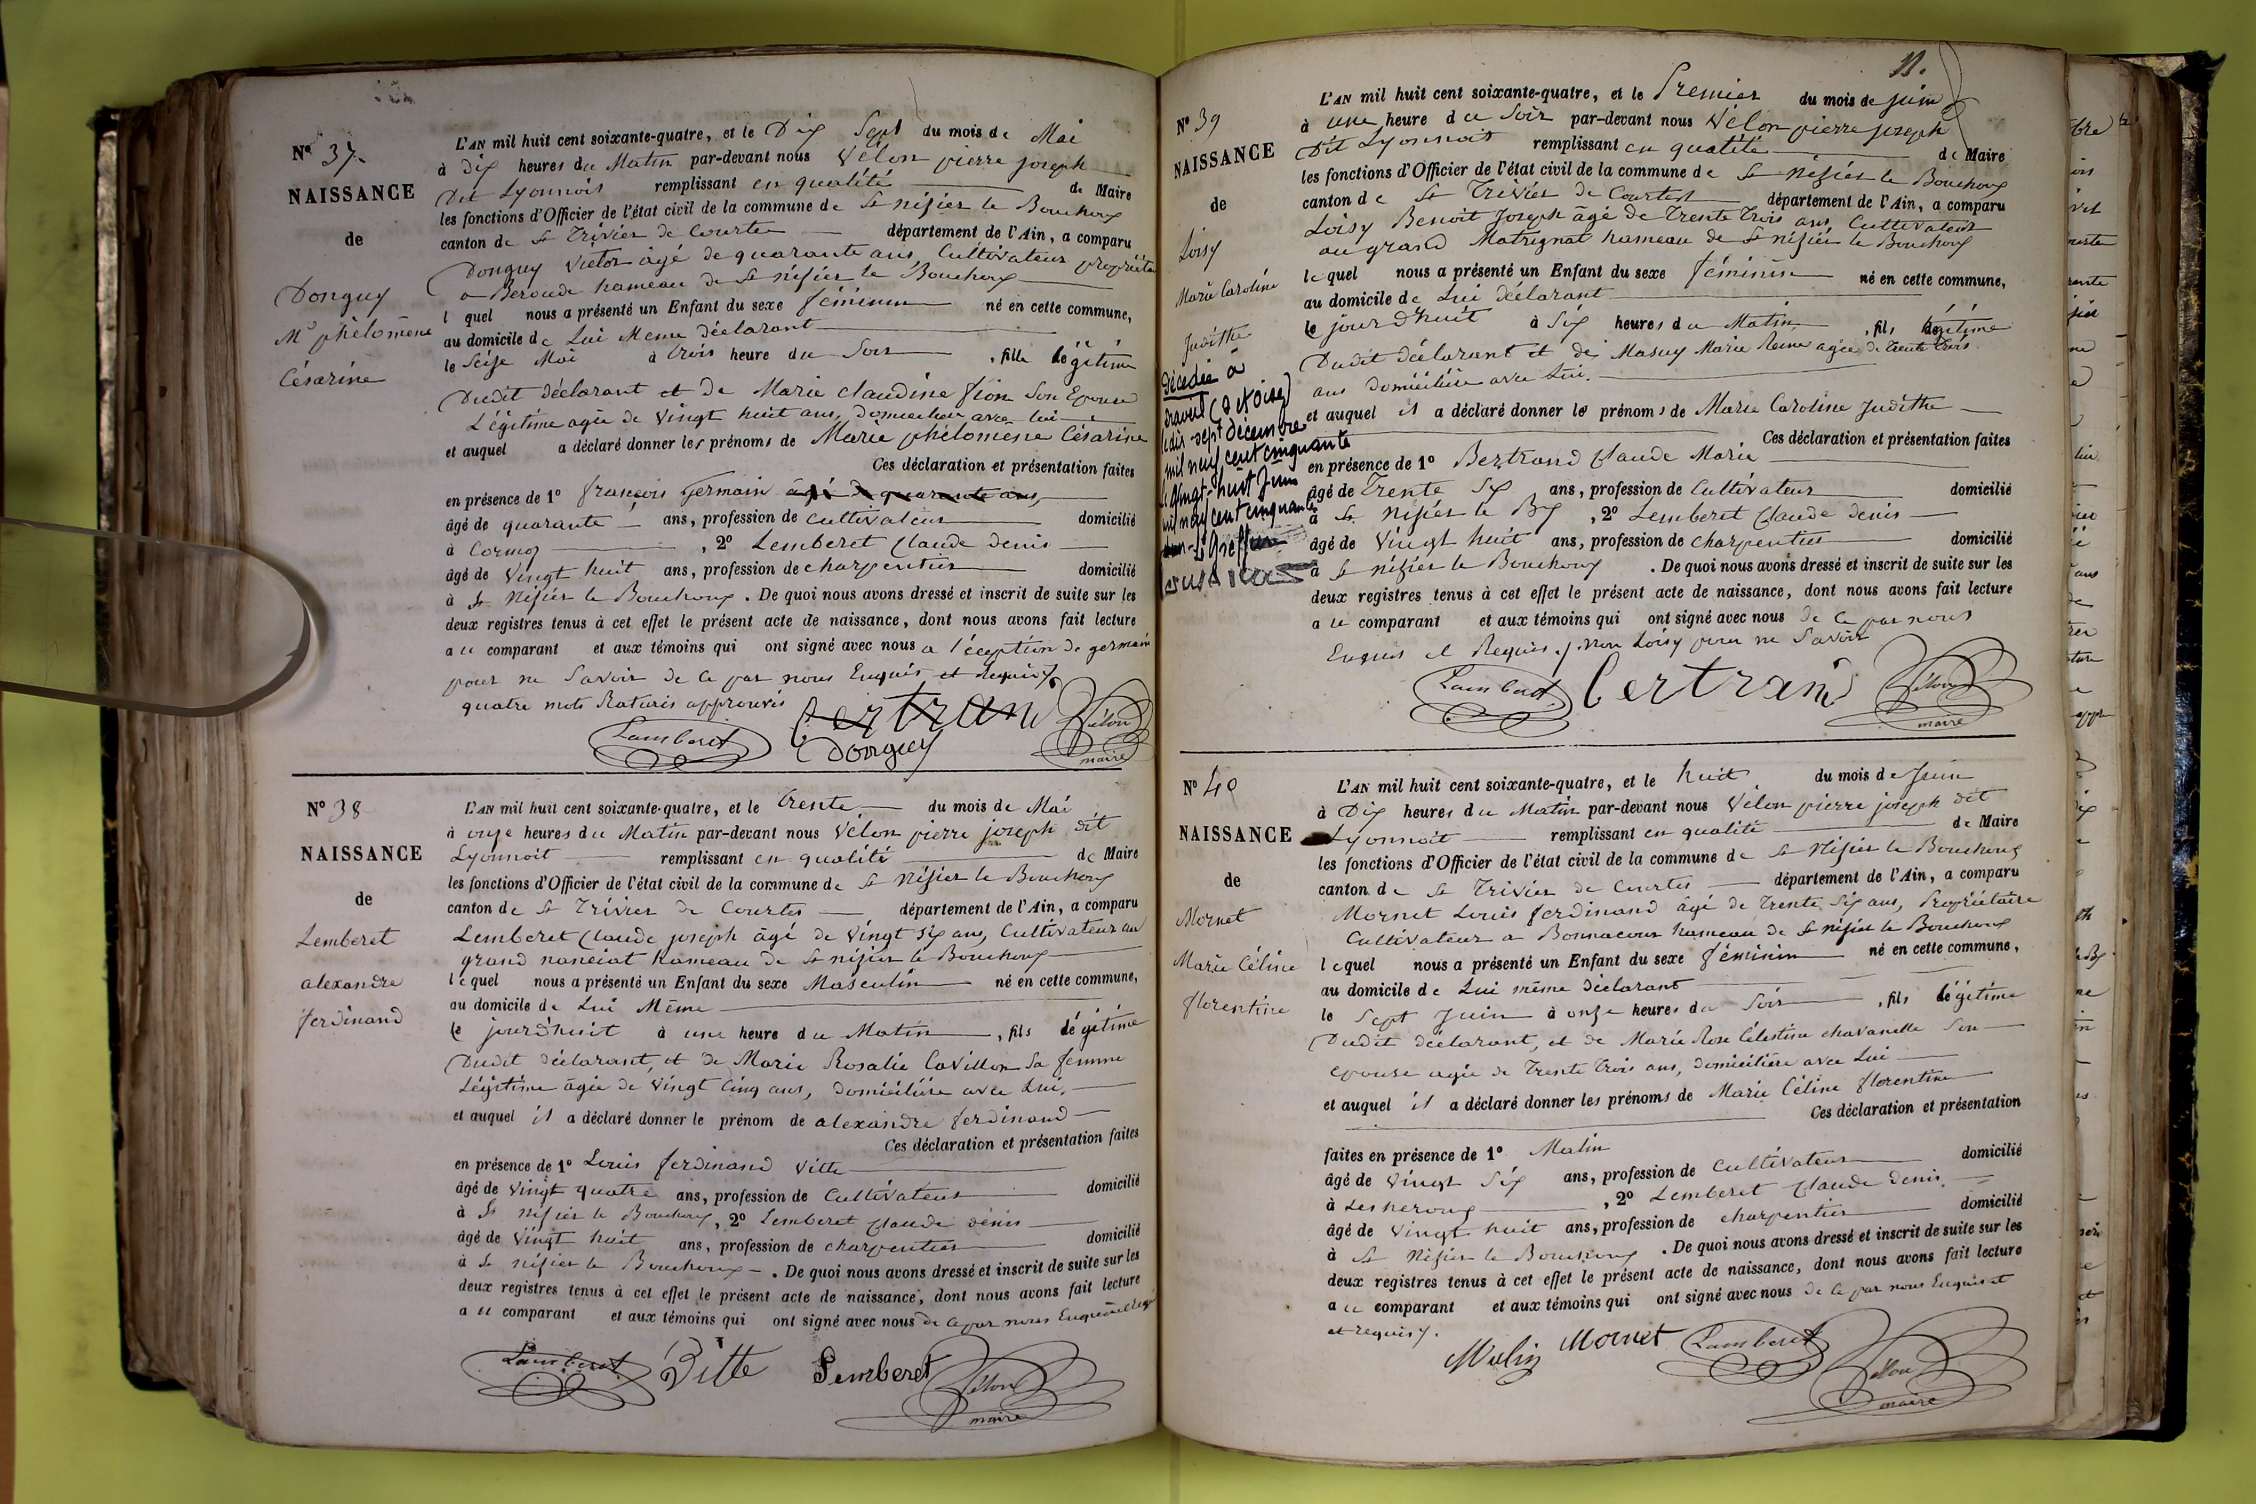 N° 37
NAISSANCE
de
Donguy
Mie phélomène
Césarine
L'AN mil huit cent soixante-quatre, et le Dix Sept du mois de Mai
à dix heures du Matin par-devant nous Vélon pierre joseph
Dit Lyonnois remplissant en qualité de Maire
les fonctions d'Officier de l'état civil de la commune de St nisier le Bouchoux
canton de St Trivier de Courtes département de l'Ain, a comparu
Donguy Victor âgé de quarante ans, Cultivateur propriétaire
a Beroude hameau de St nisier le Bouchoux
l quel nous a présenté un Enfant du sexe féminin né en cette commune,
au domicile de Lui Meme déclarant
le Seize Mai à trois heure du Soir , fille légitime
Dudit déclarant et de Marie claudine fion Son Epouse
Légitime agée de Vingt huit ans, Domiciliée avec lui
et auquel a déclaré donner les prénoms de Marie phélomène Césarine
Ces déclaration et présentation faites
en présence de 1° françois Germain âgé de quarante ans,
âgé de quarante ans, profession de cultivateur domicilié
à Cormoz , 2° Lemberet Claude denis
âgé de Vingt huit ans, profession de charpentier domicilié
à St Nisier le Bouchoux . De quoi nous avons dressé et inscrit de suite sur les
deux registres tenus à cet effet le présent acte de naissance, dont nous avons fait lecture
a ce comparant et aux témoins qui ont signé avec nous a l'éception de germain
pour ne Savoir de ce par nous Enquis et Requis
quatre mots Raturés approuvés
Lamberet Bertrand Donguy Vélon maire
N° 38
NAISSANCE
de
Lemberet
alexandre
ferdinand
L'AN mil huit cent soixante-quatre, et le trente du mois de Mai
à onze heures du Matin par-devant nous Vélon pierre joseph dit
Lyonnoit remplissant en qualité de Maire
les fonctions d'Officier de l'état civil de la commune de St Nisier le Bouchoux
canton de St Trivier de Courtes département de l'Ain, a comparu
Lemberet Claude joseph âgé de Vingt six ans, Cultivateur au
grand nanciat hameau de St nizier le Bouchoux
lequel nous a présenté un Enfant du sexe Masculin né en cette commune,
au domicile de Lui Même
le jourd'huit à une heure du Matin , fils légitime
Dudit déclarant, et de Marie Rosalie Cavillon Sa femme
Légitime âgée de Vingt Cinq ans, domiciliée avec Lui,
et auquel il a déclaré donner le prénom de alexandre ferdinand
Ces déclaration et présentation faites
en présence de 1° Louis ferdinand Vitte
âgé de Vingt quatre ans, profession de Cultivateur domicilié
à St Nisier le Bouchoux, 2° Lemberet Claude denis
âgé de Vingt huit ans, profession de charpentier domicilié
à St nisier le Bouchoux . De quoi nous avons dressé et inscrit de suite sur les
deux registres tenus à cet effet le présent acte de naissance, dont nous avons fait lecture
a ce comparant et aux témoins qui ont signé avec nous de ce par nous Enquis et Requis
Lamberet Vitte Lemberet Vélon maire
11.
N° 39
NAISSANCE
de
Loisy
Marie Caroline
Judithe
Décédée à
Draveil (S et Oise)
le dix-sept décembre
mil neuf cent cinquante
Le vingt-huit Juin
mil neuf cent cinquante
un - Le Greffier
L'AN mil huit cent soixante-quatre, et le Premier du mois de juin
à une heure du Soir par-devant nous Vélon pierre joseph
Dit Lyonnoit remplissant en qualité de Maire
les fonctions d'Officier de l'état civil de la commune de St Nisier le Bouchoux
canton de St Trivier de Courtes département de l'Ain, a comparu
Loisy Benoit Joseph âgé de Trente Trois ans, Cultivateur
au grand Matrignat hameau de St nisier le Bouchoux
lequel nous a présenté un Enfant du sexe féminin né en cette commune,
au domicile de Lui déclarant
le jourd'huit à Six heures du Matin , fils légitime
Dudit déclarant et de Masuy Marie Reine agée de trente trois
ans domiciliée avec Lui.
et auquel il a déclaré donner les prénoms de Marie Caroline Judithe
Ces déclaration et présentation faites
en présence de 1° Bertrand Claude Marie
âgé de Trente Six ans, profession de Cultivateur domicilié
à St Nisier le Bx , 2° Lemberet Claude denis
âgé de Vingt huit ans, profession de charpentier domicilié
à St nisier le Bouchoux . De quoi nous avons dressé et inscrit de suite sur les
deux registres tenus à cet effet le présent acte de naissance, dont nous avons fait lecture
a ce comparant et aux témoins qui ont signé avec nous de ce par nous
Enquis et Requis, non Loisy pour ne Savoir
Lamberet Bertrand Vélon maire
N° 40
NAISSANCE
de
Mornet
Marie Céline
florentine
L'AN mil huit cent soixante-quatre, et le huit du mois de Juin
à Dix heures du Matin par-devant nous Vélon pierre joseph dit
Lyonnoit remplissant en qualité de Maire
les fonctions d'Officier de l'état civil de la commune de St Nisier le Bouchoux
canton de St Trivier de Courtes département de l'Ain, a comparu
Mornet Louis ferdinand âgé de Trente Six ans, Propriétaire
Cultivateur a Bonnacour hameau de St nisier le Bouchoux
lequel nous a présenté un Enfant du sexe féminin né en cette commune,
au domicile de Lui même déclarant
le Sept Juin à onze heures du Soir , fils légitime
Dudit déclarant, et de Marie Rose Célestine chavanelle Son
epouse agée de Trente Trois ans, domiciliée avec Lui
et auquel il a déclaré donner les prénoms de Marie Céline florentine
Ces déclaration et présentation
faites en présence de 1° Malin
âgé de Vingt Six ans, profession de Cultivateur domicilié
à Lesheroux , 2° Lemberet Claude denis
âgé de Vingt huit ans, profession de charpentier domicilié
à St Nisier le Bouchoux . De quoi nous avons dressé et inscrit de suite sur les
deux registres tenus à cet effet le présent acte de naissance, dont nous avons fait lecture
a ce comparant et aux témoins qui ont signé avec nous de ce par nous Enquis et
et requis.
Mornet Lamberet Vélon maire